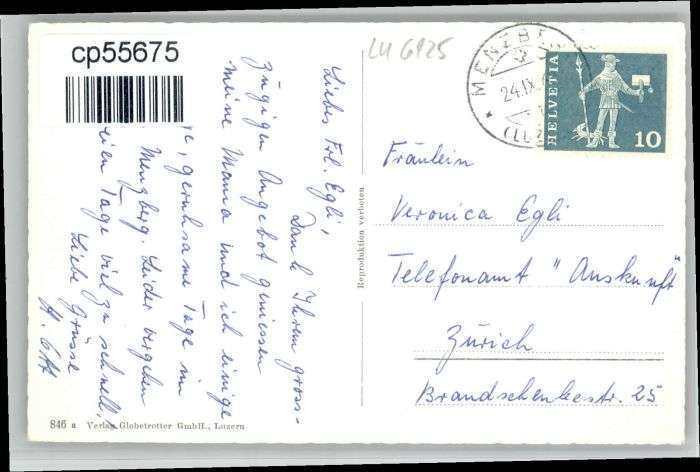 cp55675
LU 6125
MENZBERG
24.IX.
(LUZ
HELVETIA
10
Liebes Frl. Egli,
Dank Ihrem gross-
zügigen Angebot geniessen
meine Mama und ich einige
geruhsame Tage im
Menzberg. Leider vergehen
Tage viel zu schnell.
Liebe Grüsse
Reproduktion verboten
Fräulein
Veronica Egli
Telefonamt "Auskunft"
Zürich
Brandschenkestr. 25
846 a Verlag Globetrotter GmbH., Luzern